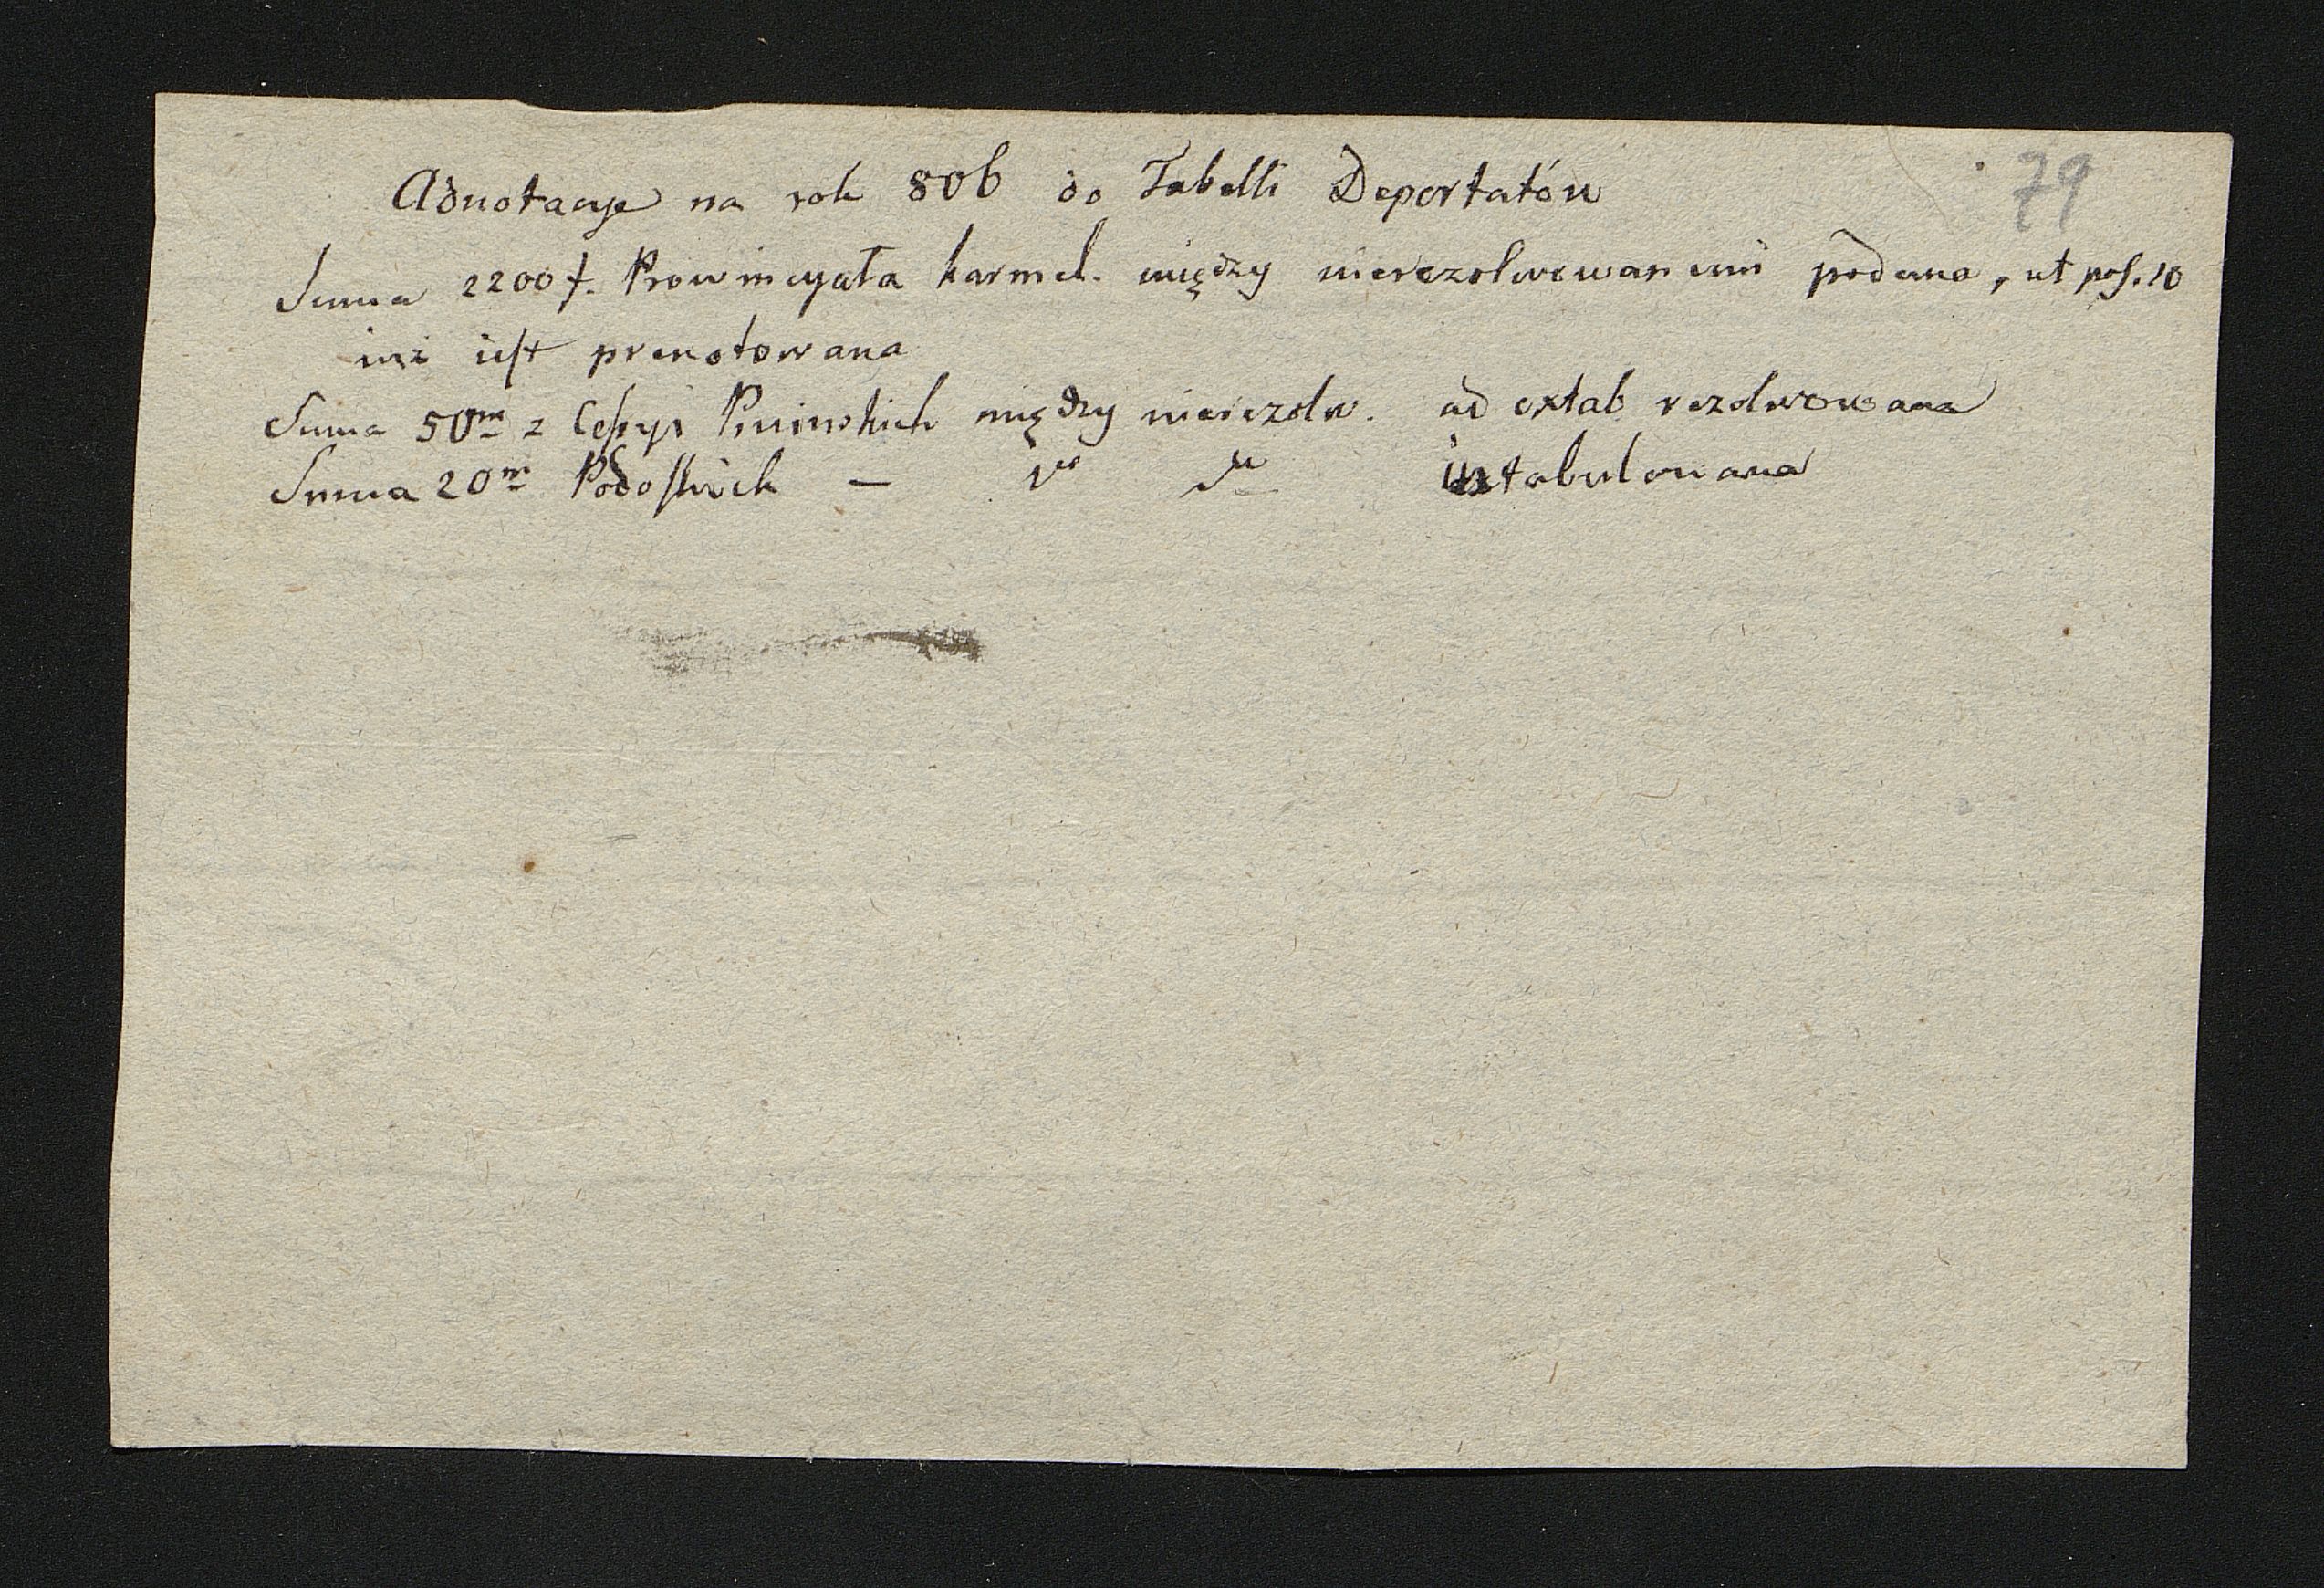 79
Adnotacye na rok 806 do Tabelli Deportatów
Summa 2200 f. Prowincyała karmel. między nierezolwowanemi podana, ut pos. 10
iuż iest prenotowana
Summa 50m z Cessyi Pninskich między nierezolw. ad extab rezolwowana
Summa 20m Podoskich — intabulowana